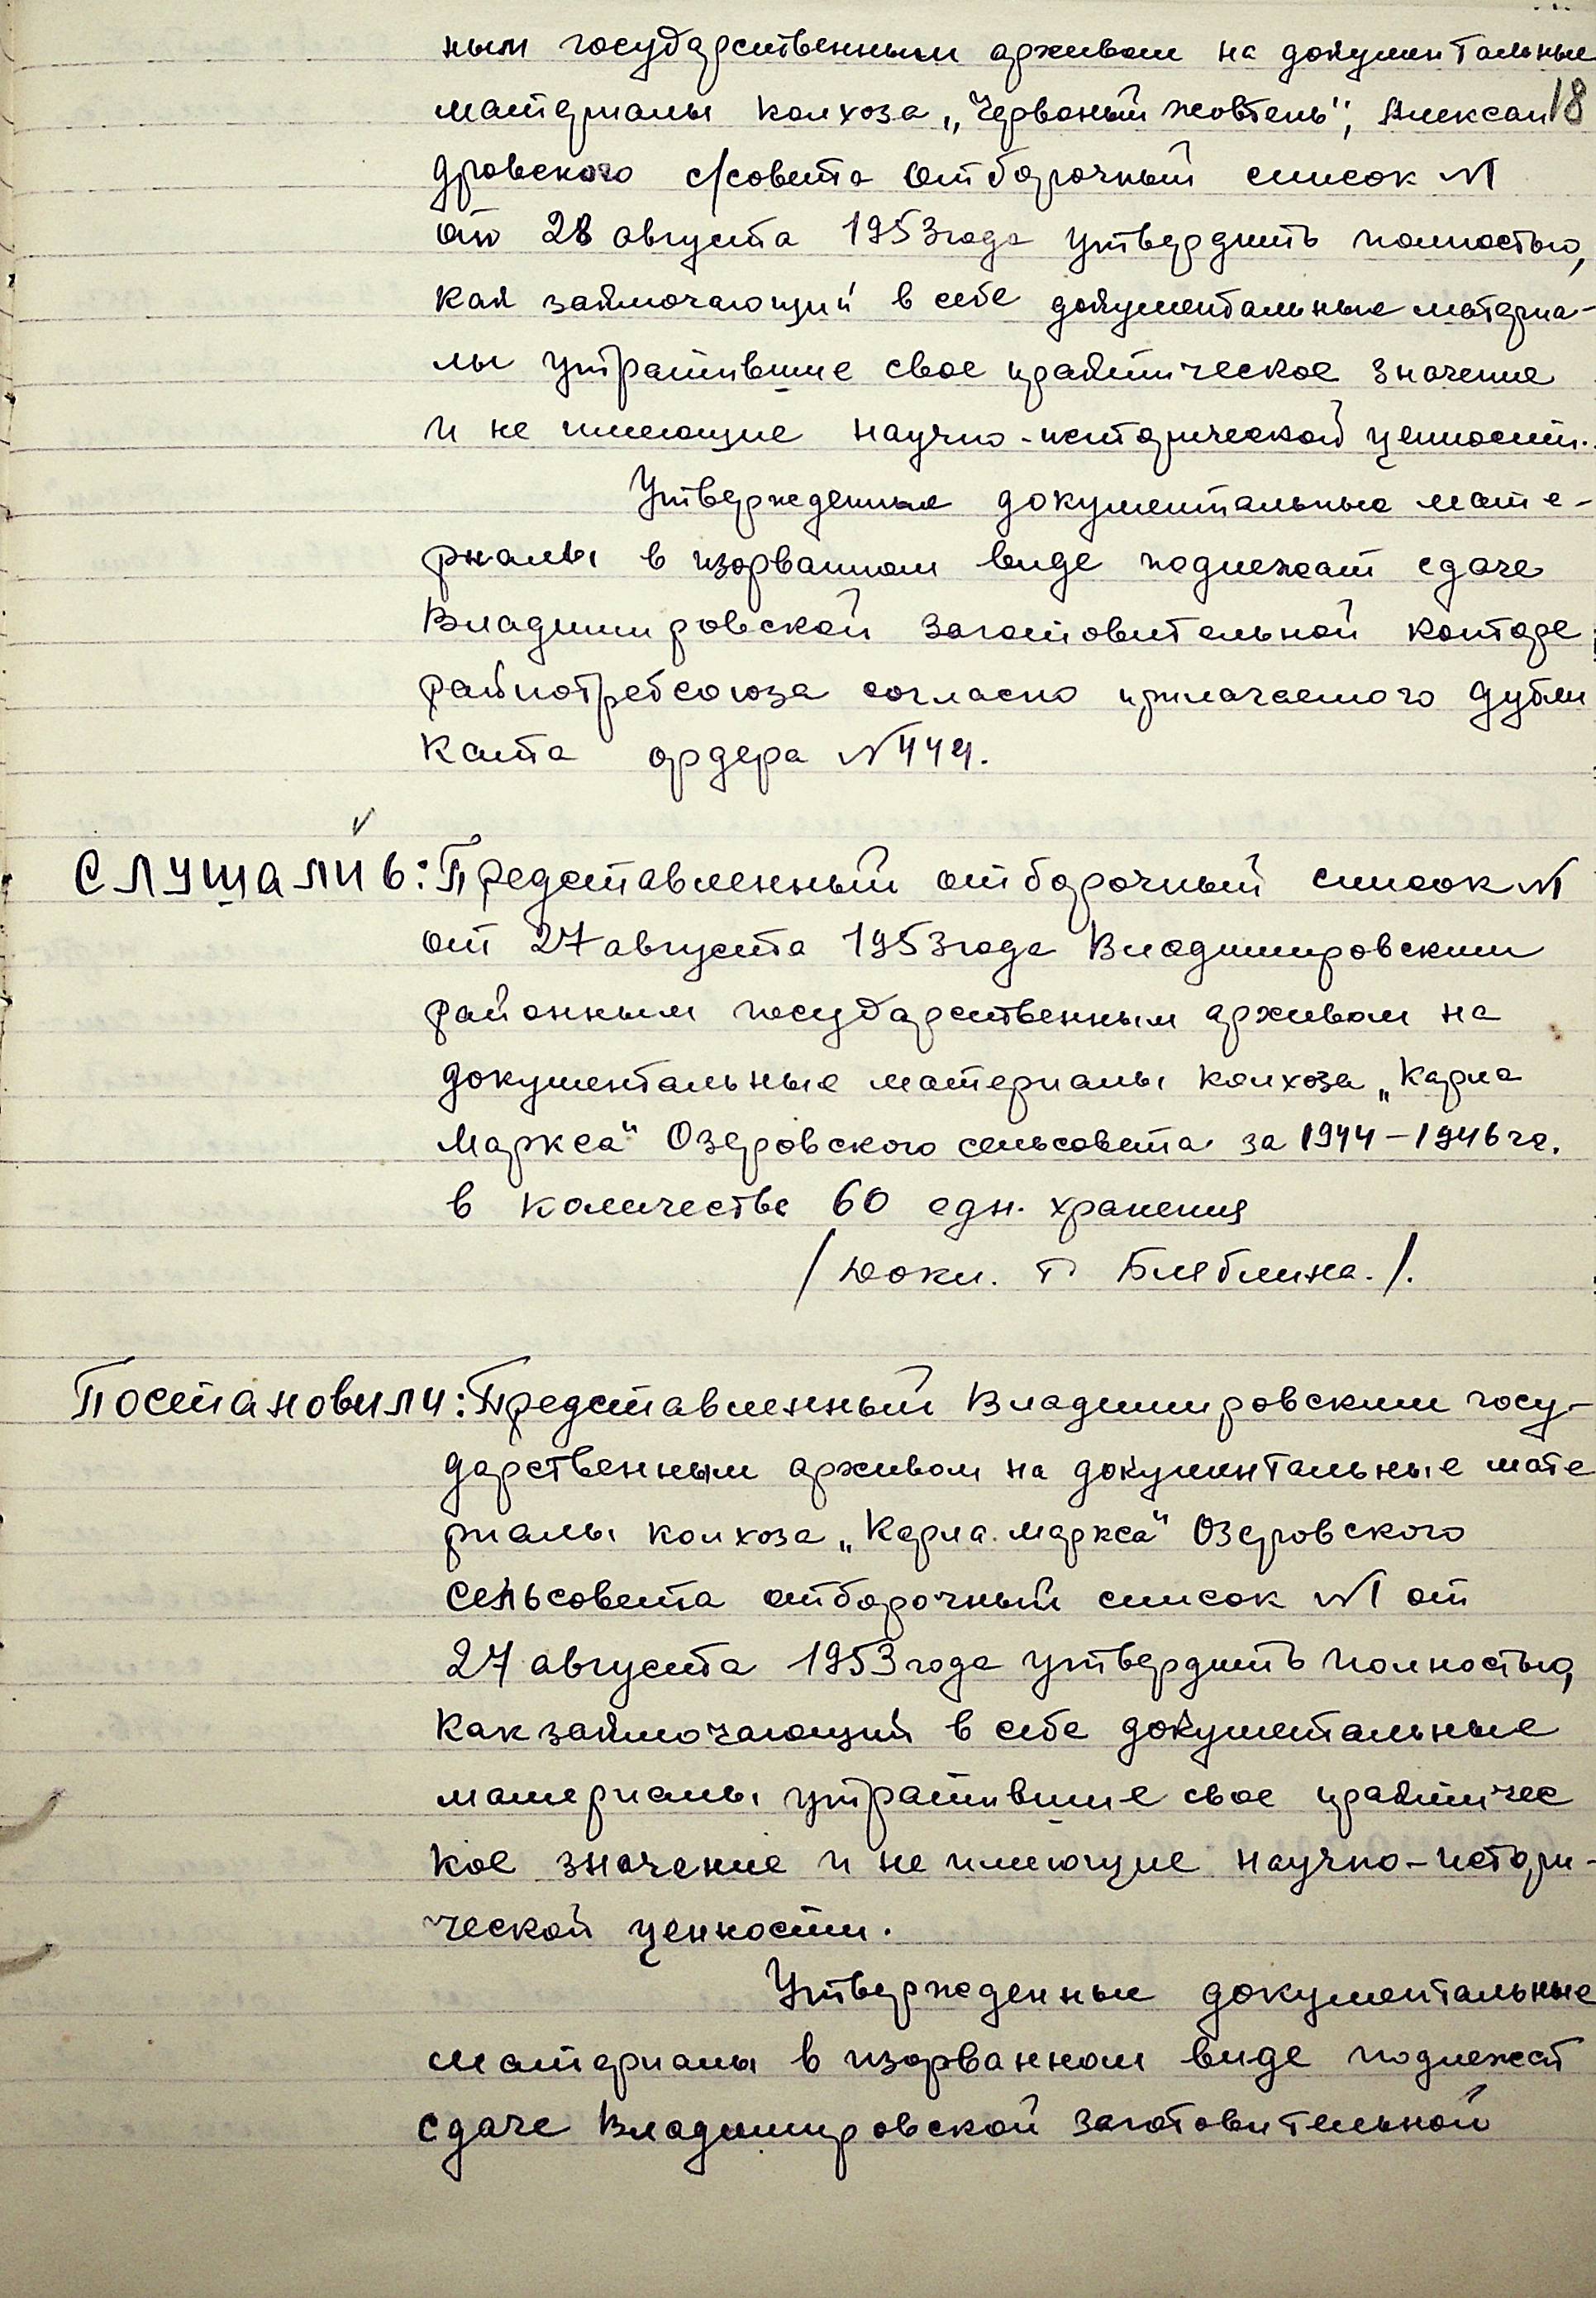 ным государственным архивом на документальные
материалы колхоза „Червоный жовтень", Алексан
18
дровского с/совета отборочный список №1
от 28 августа 1953 года утвердить полностью,
как заключающий в себе документальные материа-
лы утратившие свое практическое значение
и не имеющие научно-исторической ценности.
Утвержденные документальные мате-
риалы в изорванном виде подлежат сдаче
Владимировской заготовительной конторе
райпотребсоюза согласно прилагаемого дубли
ката ордера №444.
СЛУШАЛИ 6: Представленный отборочный список №1
от 27 августа 1953 года Владимировским
районным государственным архивом на
документальные материалы колхоза „Карла
Маркса" Озеровского сельсовета за 1944-1946 гг.
в количестве 60 едн. хранения
/Докл. т. Блеблина./.
Постановили: Представленный Владимировским госу-
дарственным архивом на документальные мате
риалы колхоза „Карла Маркса" Озеровского
сельсовета отборочный список №1 от
27 августа 1953 года утвердить полностью,
как заключающий в себе документальные
материалы утратившие свое практичес
кое значение и не имеющие научно-истори-
ческой ценности.
Утвержденные документальные
материалы в изорванном виде подлежат
сдаче Владимировской заготовительной